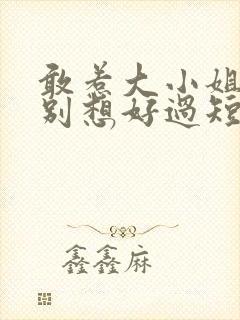 敢惹大小姐
别想好过短
鑫鑫麻